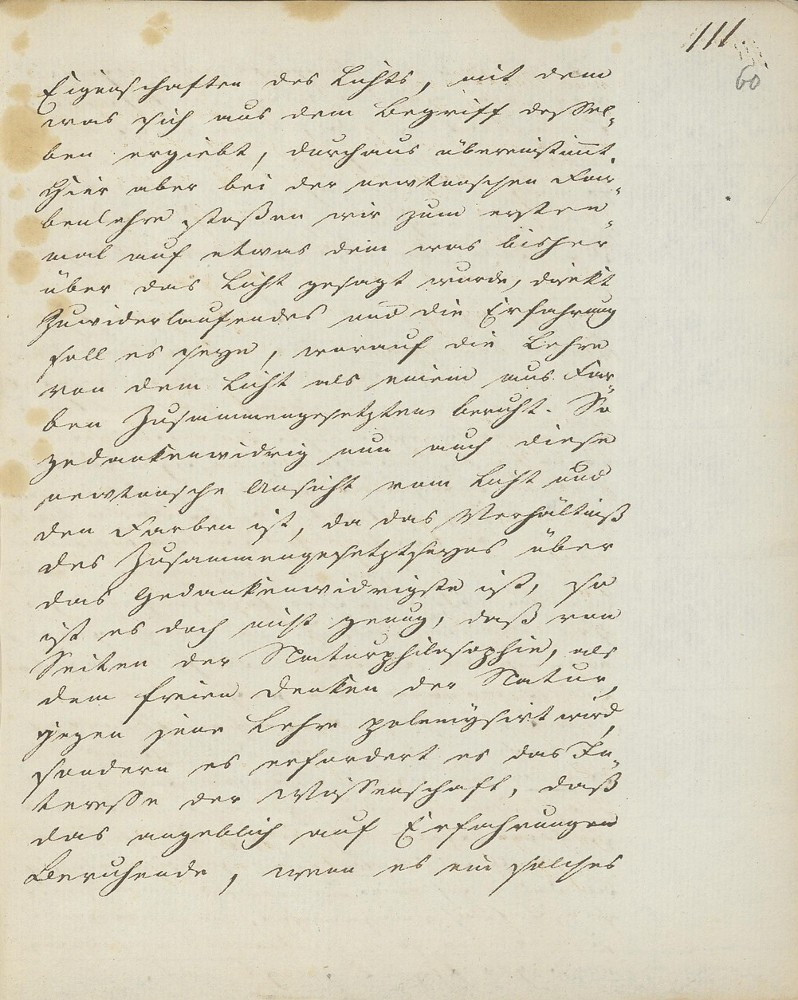 111.
60
Eigenschaften des Lichts, mit dem
was sich aus dem Begriff dessel-
ben ergiebt, durchaus übereinstimmt.
Hier aber bei der newtonschen Far-
benlehre stoßen wir zum ersten-
mal auf etwas dem was bisher
über das Licht gesagt wurde, direkt
Zuwiderlaufendes und die Erfahrung
soll es seyn, worauf die Lehre
von dem Licht als einem aus Far-
ben Zusammengesetzten beruht. So
gedankenwidrig nun auch diese
newtonsche Ansicht vom Licht und
den Farben ist, da das Verhältniß
des Zusammengesetztseyns über
das Gedankenwidrigste ist, so
ist es doch nicht genug, daß von
Seiten der Naturphilosophie, als
dem freien Denken der Natur,
gegen jene Lehre polemysirt wird,
sondern es erfordert es das In-
teresse der Wissenschaft, daß
das angeblich auf Erfahrungen
Beruhende, wenn es ein solches